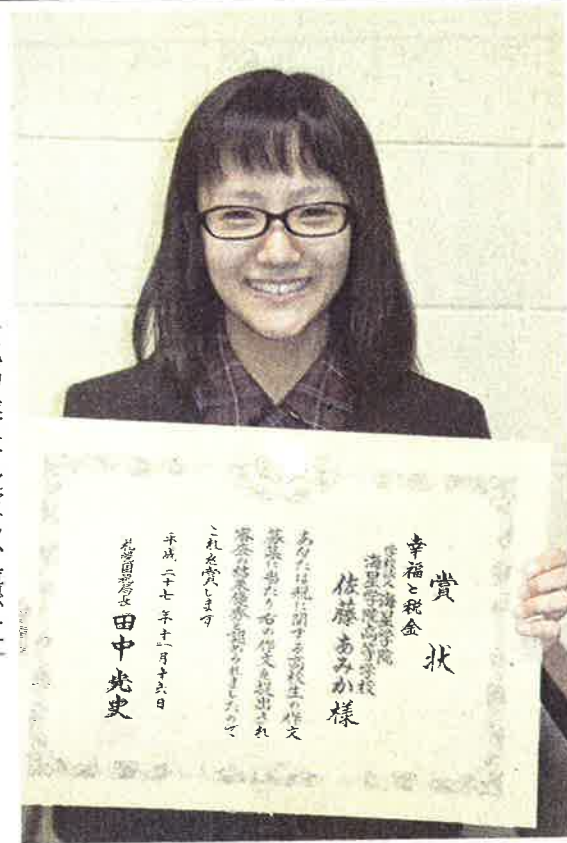 賞状
幸福と税金
学校法人海星学院
海星学院高等学校
佐藤あみか様
あなたは税に関する高校生の作文
募集に当たり右の作文を提出され
審査の結果優秀と認められましたので
これを賞します
平成二十七年十一月十六日
札幌国税局長 田中光史